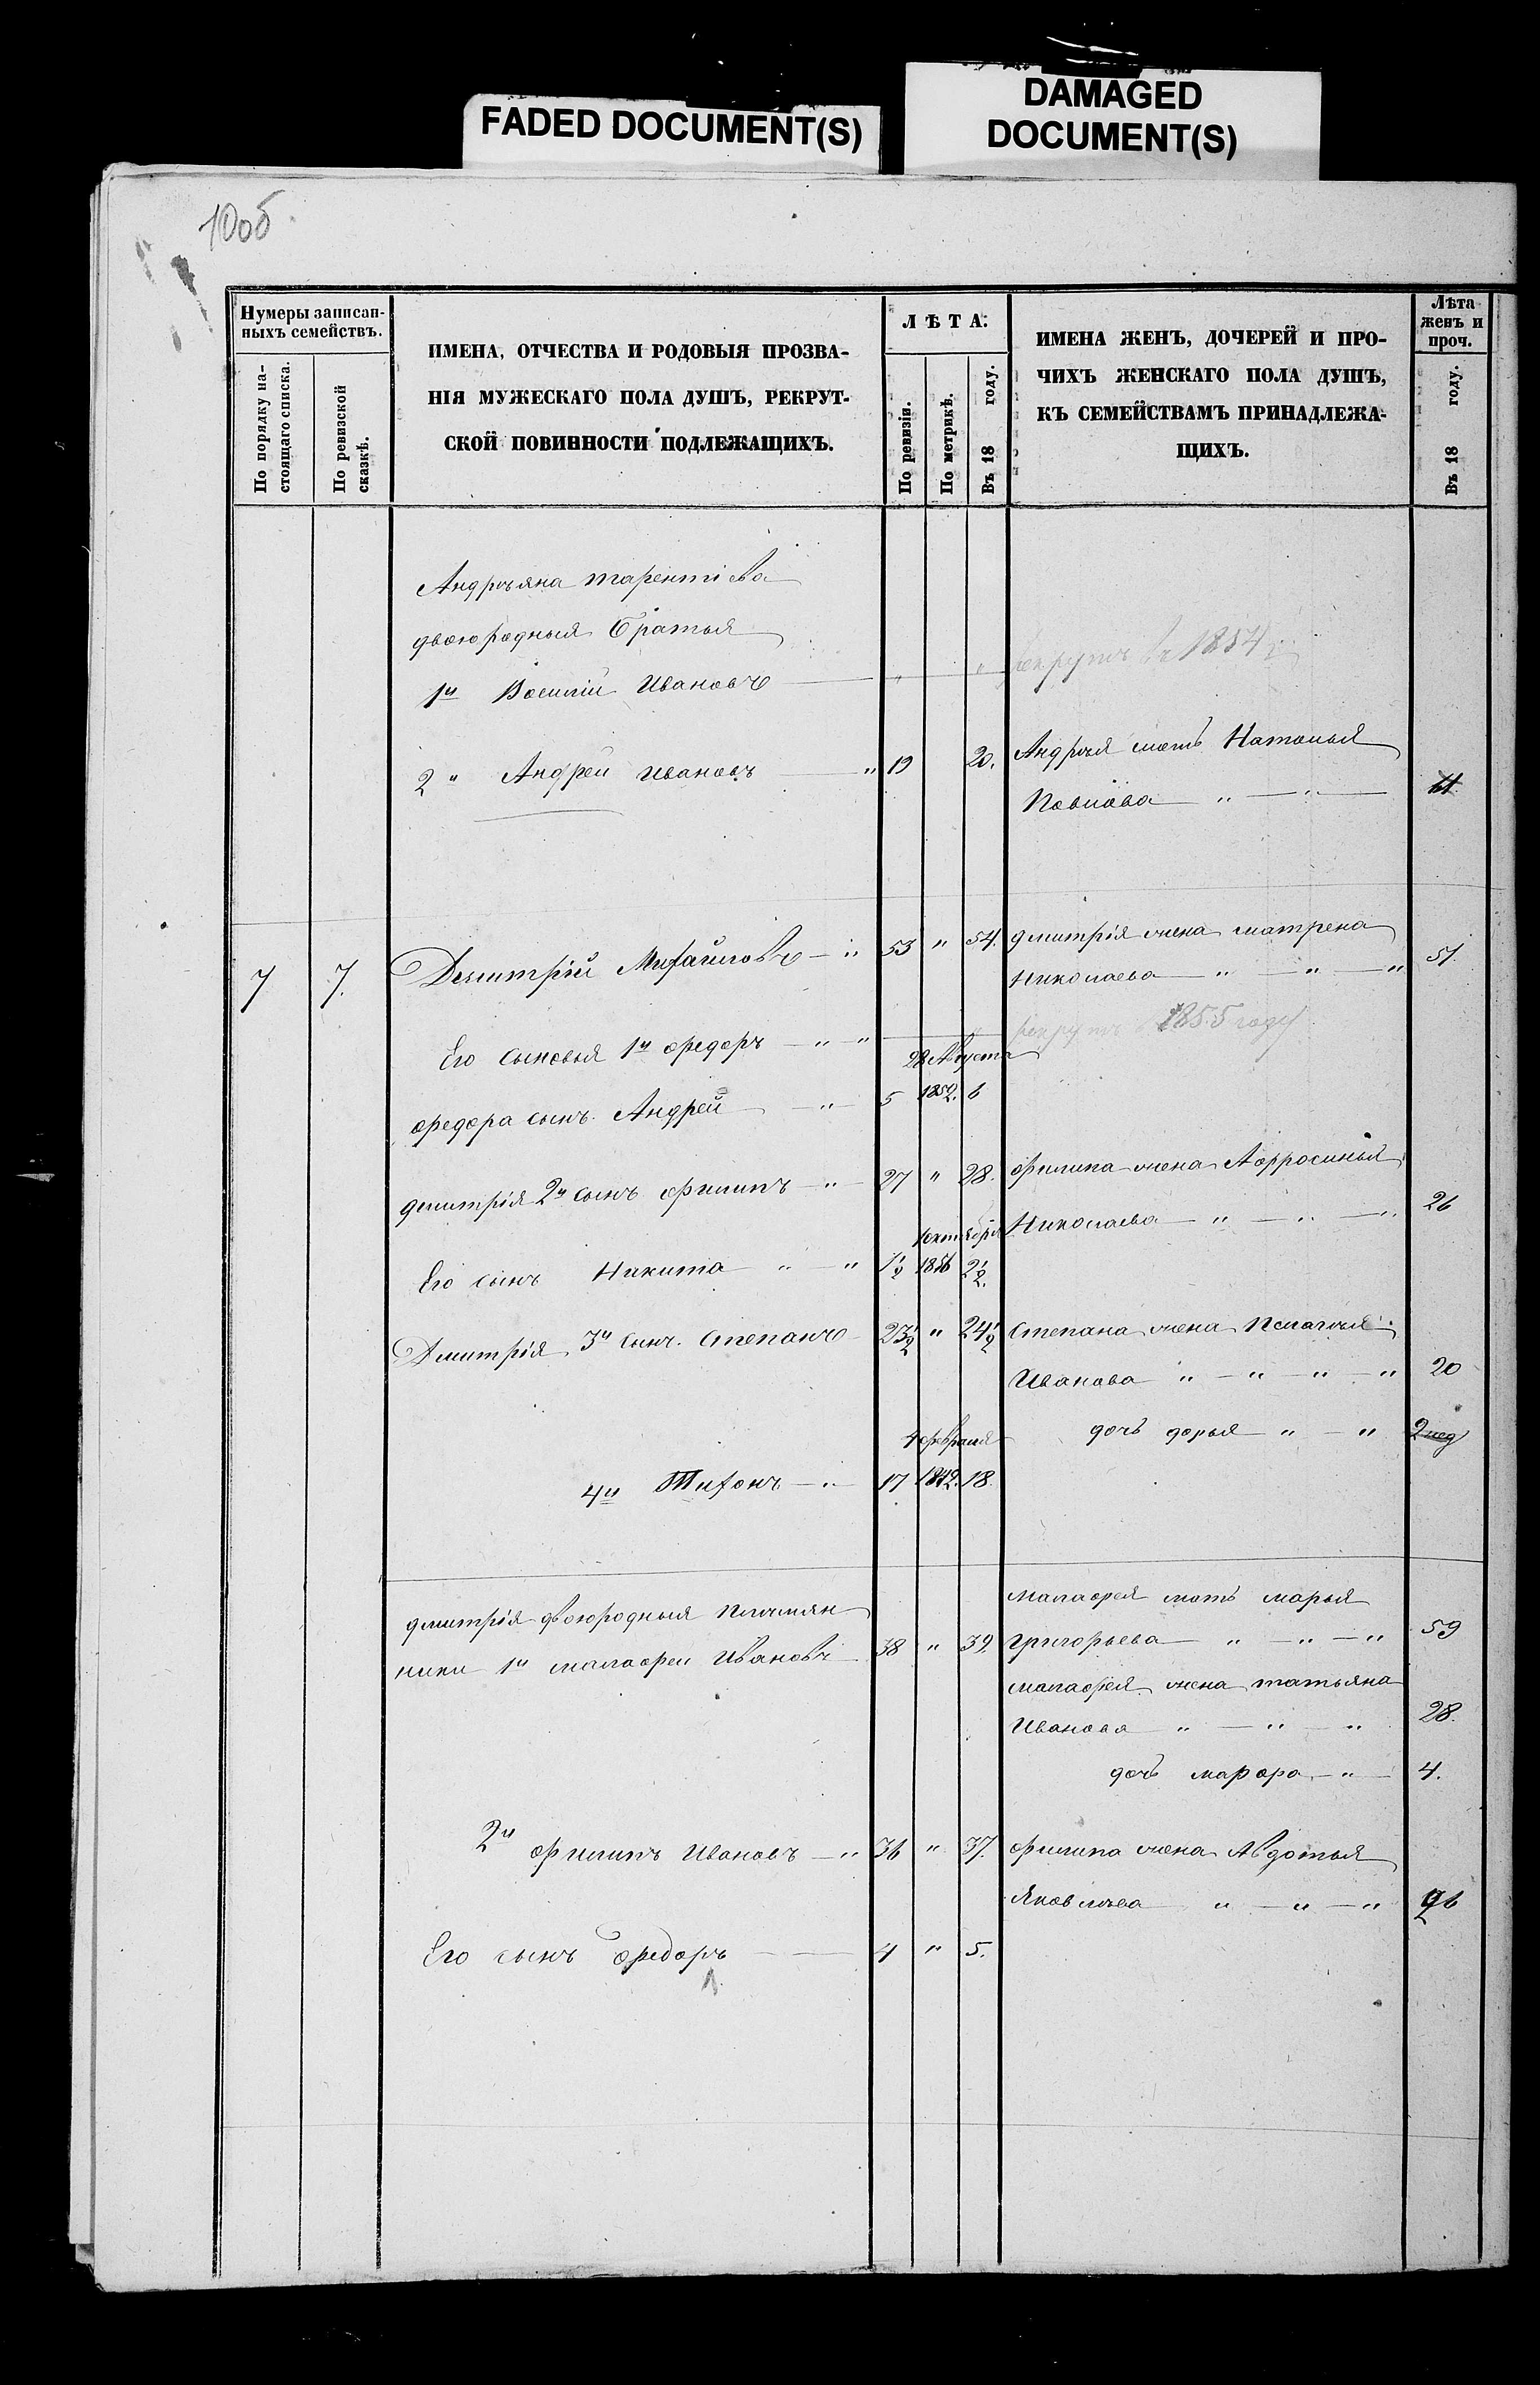 FADED DOCUMENT(S)
DAMAGED
DOCUMENT(S)
10об
Нумеры записан-
ныхъ семействъ.
По порядку на-
стоящаго списка.
По ревизской
сказкѣ.
ИМЕНА, ОТЧЕСТВА И РОДОВЫЯ ПРОЗВА-
НІЯ МУЖЕСКАГО ПОЛА ДУШЪ, РЕКРУТ-
СКОЙ ПОВИННОСТИ ПОДЛЕЖАЩИХЪ.
ЛѢТА.
По ревизіи.
По метрикѣ.
Въ 18 году.
ИМЕНА ЖЕНЪ, ДОЧЕРЕЙ И ПРО-
ЧИХЪ ЖЕНСКАГО ПОЛА ДУШЪ,
КЪ СЕМЕЙСТВАМЪ ПРИНАДЛЕЖА-
ЩИХЪ.
Лѣта
женъ и
проч.
Въ 18 году.
Андрѣяна тарентіева
двоюродныя братья
1й Василій Ивановъ " " рекрутъ въ 1854
2 " Андрей Ивановъ " 19 20. Андрѣя мать Наталья
Павлова " "
7 7. Дмитрій Михайловъ " 53 " 54. дмитрія жена матрена
Николаева " " " 51.
Его сыновья 1й федоръ " " рекрутъ в 1855 году
28 Августа
федора сынъ Андрей " 5 1852. 6
дмитрія 2й сынъ филипъ " 27 " 28. филипа жена Афросинья
Николаева " " " 26
октября
Его сынъ Никита " " 1½ 1856 2½.
Дмитрія 3й сынъ Степанъ 23½ " 24½ степана жена Пелагѣя
Иванова " " " " 20
дочь дарья " " 2 нед
4 февраля
4й Тихонъ " 17 1842. 18.
дмитрія двоюродныя племян
ники 1й малафеи Ивановъ 38 " 39. малафея мать марья
григорьева " " " 59
малафея жена татьяна
Иванова " " " 28.
дочь марфа " 4.
2й филипъ Ивановъ " 36 " 37. филипа жена Авдотья
Яковлева " " " 26
Его сынъ федоръ 4 " 5.